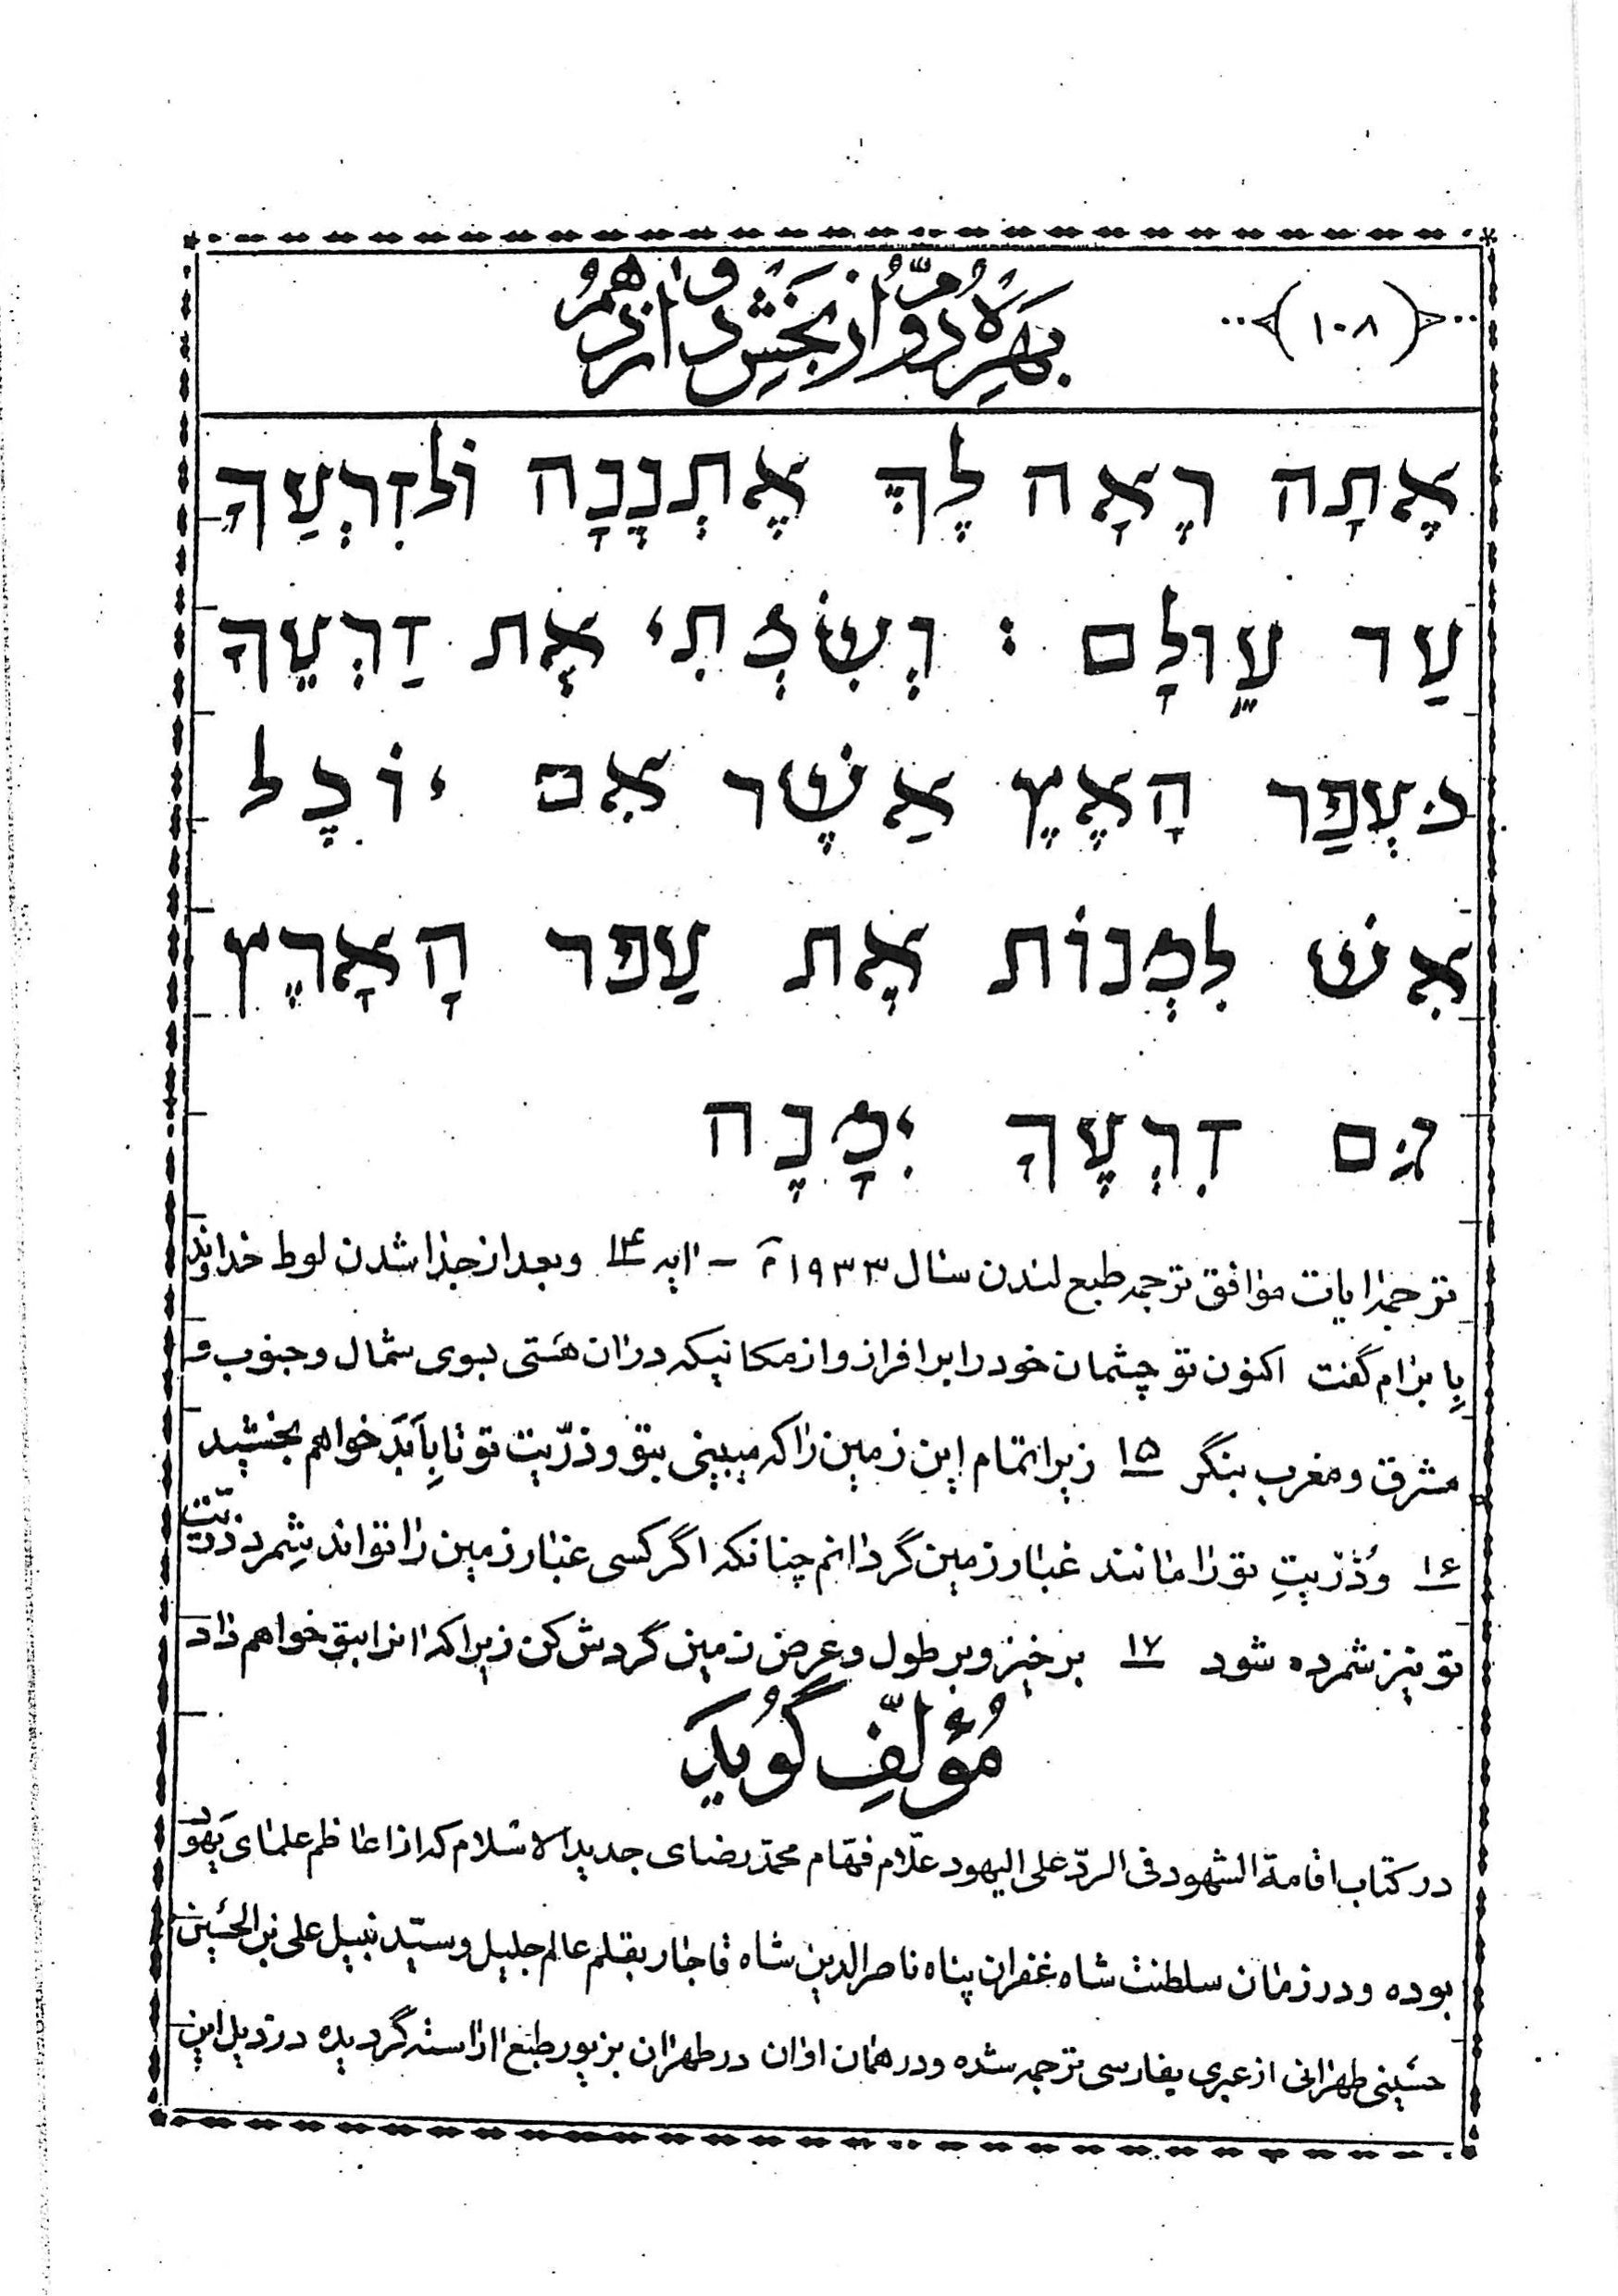 (۱۰۸)
بهرهٔ دوّم از بخش دوازدهم
אֶתָה רֹאָה לְךָ אֶתְנֶנָה וּלזִרְעַךָ
עַד עוֹלָם : וְשִׂמְתִי אֶת זַרְעֶךָ
כּעְפַר הָאֶץ אַשֶׁר אִם יוֹכָל
אִשׁ לִמְנוֹת אֶת עַפַר הָאָרֶץ
גּם זִרְעֶךָ יִמָנֶה
ترجمهٔ ایات موافق ترجمه طبع لندن سال ۱۹۳۳ م - ایه ۱۴ وبعد از جدا شدن لوط خداوند
بابرام گفت اکنون تو چشمان خود را برافراز و از مکانیکه در ان هستی بسوی شمال و جنوب و
مشرق و مغرب بنگر ۱۵ زیرا تمام این زمین را که میبینی بتو و ذرّیت تو تا بابد خواهم بخشید
۱۶ و ذرّیتِ تو را مانند غبار زمین گردانم چنانکه اگر کسی غبار زمین را تواند شِمرد ذرّیت
تو نیز شمرده شود ۱۷ برخیز و بر طول و عرض زمین گردش کن زیرا که انرا بتو خواهم داد
مُؤلّفِ گُوید
در کتاب اقامة الشهود فی الردّ علی الیهود علّام فهّام محمّد رضای جدید الاسلام که از اعاظم علمای یَهوُد
بوده و در زمان سلطنت شاه غفران پناه ناصرالدین شاه قاجار بقلم عالم جلیل و سیّد نبیل علی بن الحُسَین
حسَینی طهرانی از عبری بفارسی ترجمه شده و در همان اوان در طهران بزیور طبع اراسته گردیده در ذیل این